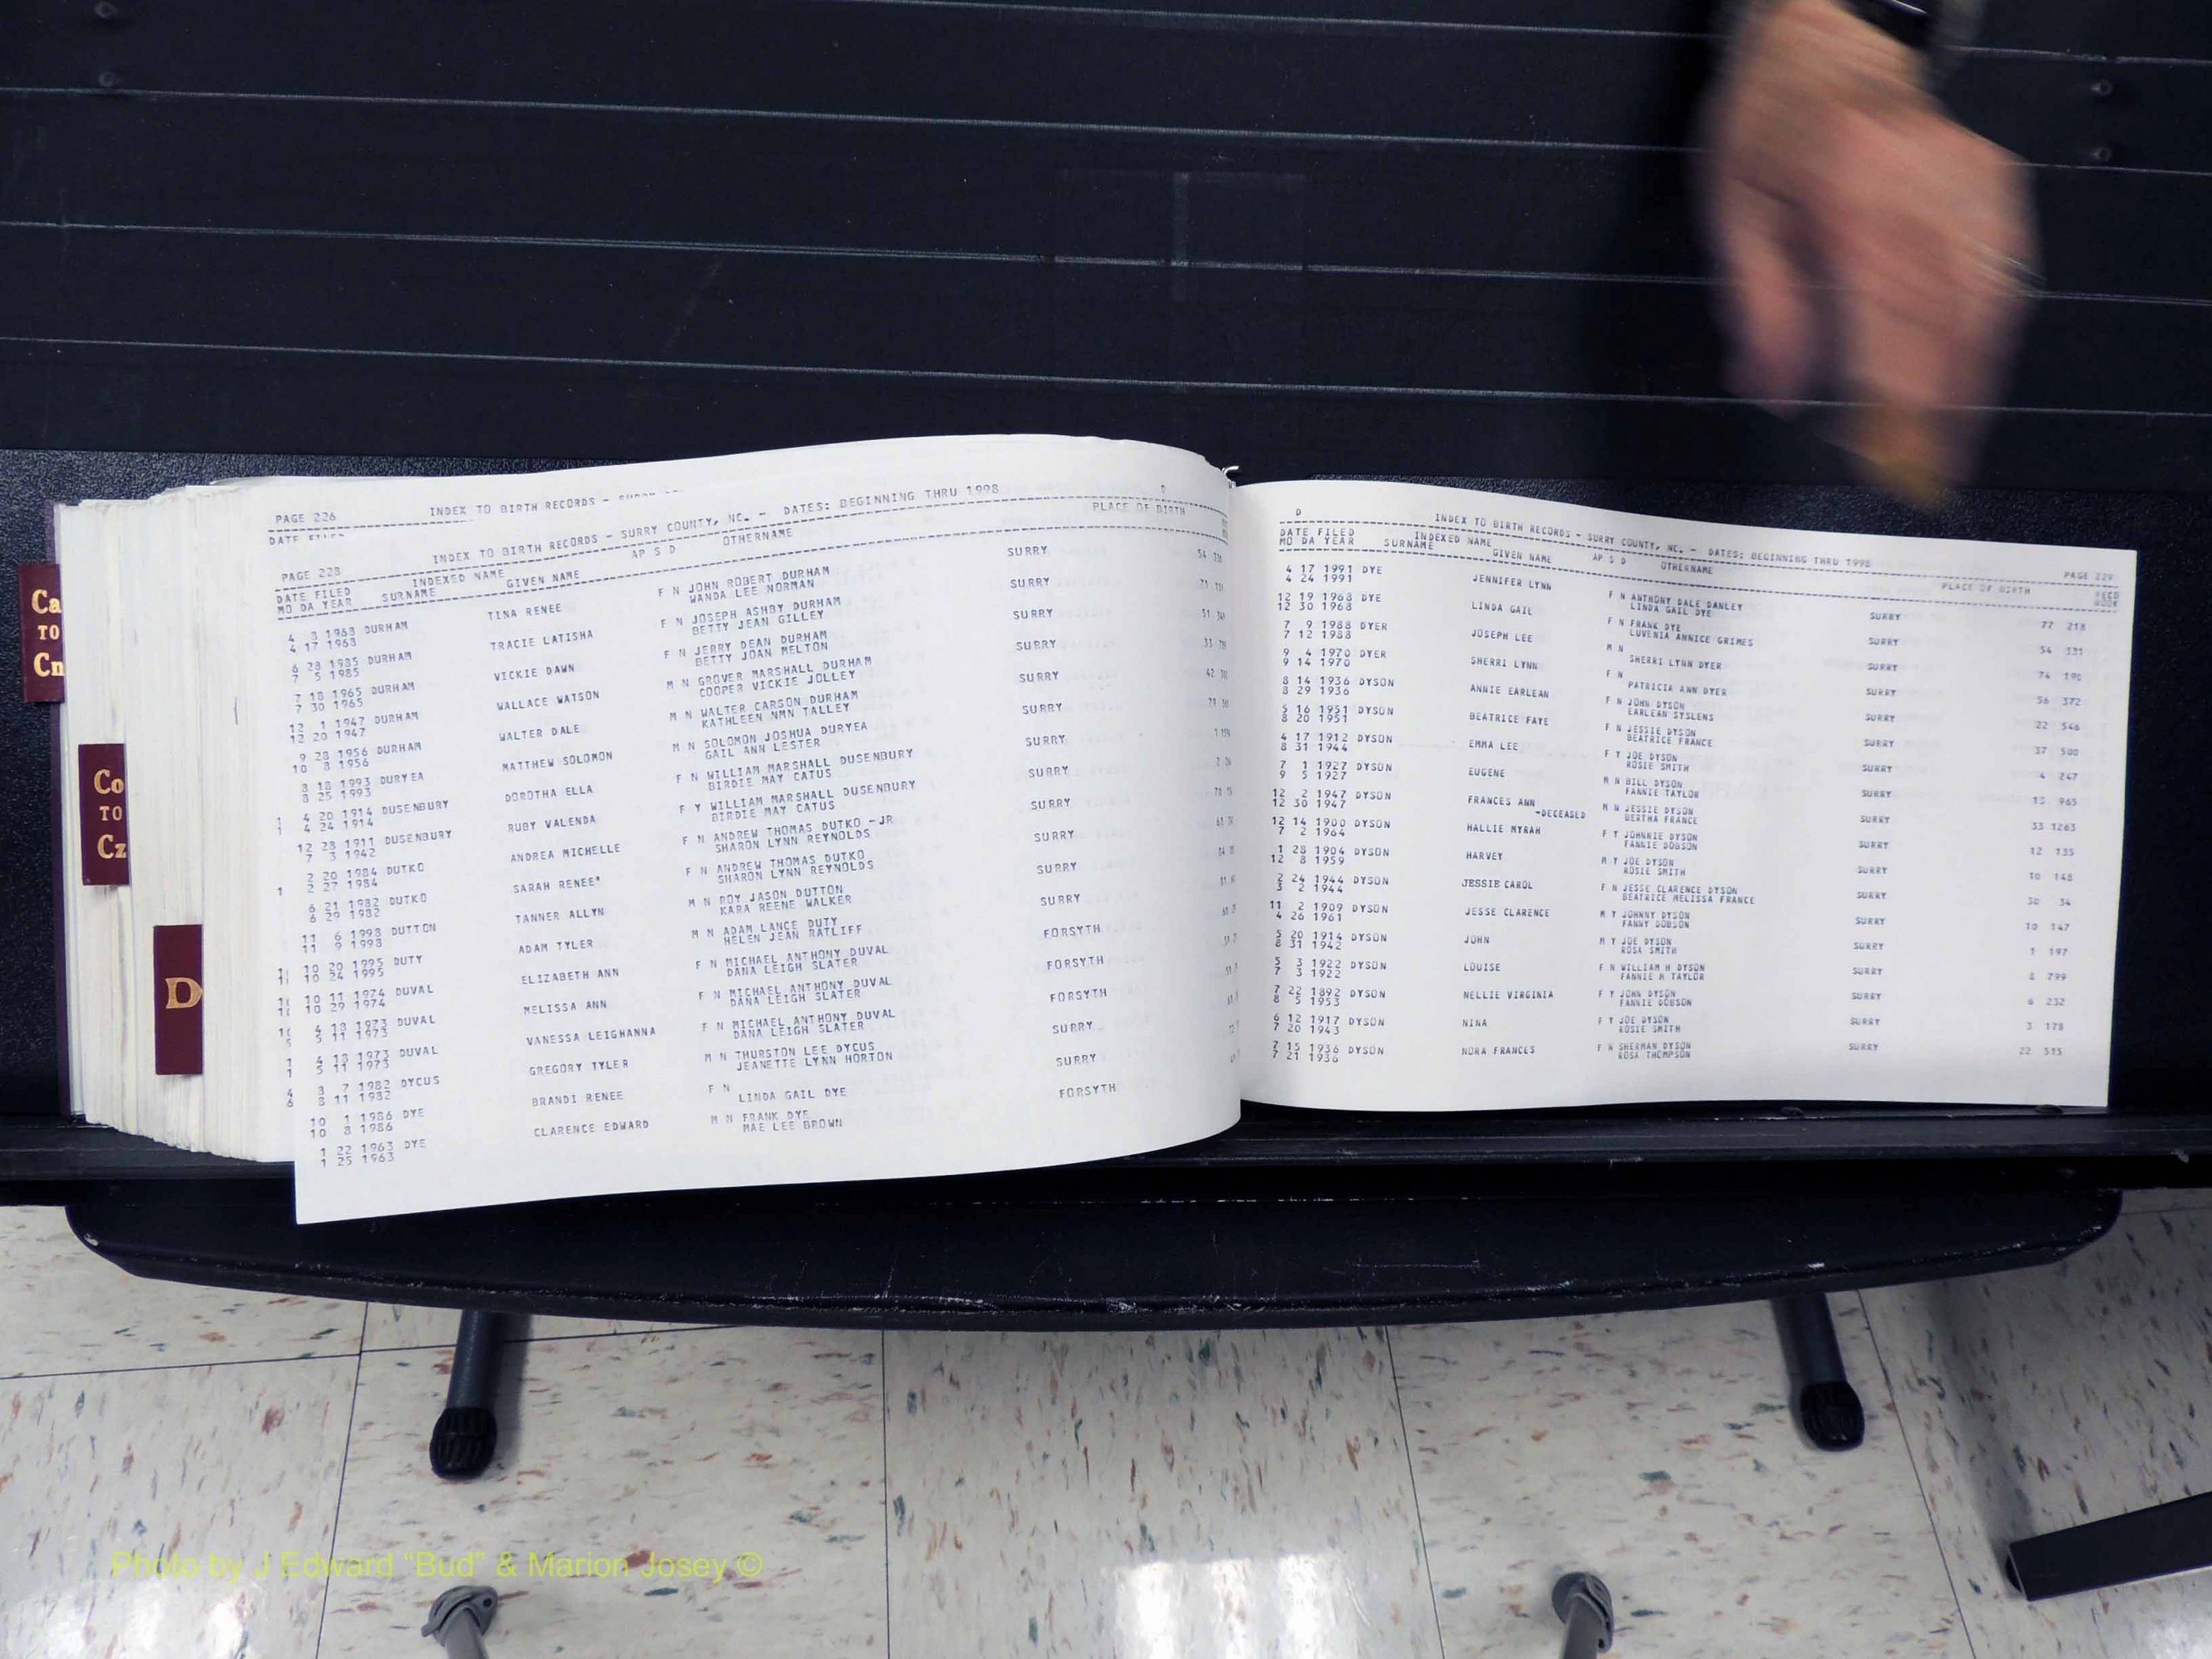 Ca
TO
Cn
Co
TO
Cz
D
PAGE 226 INDEX TO BIRTH RECORDS -
PAGE 228 INDEX TO BIRTH RECORDS - SURRY COUNTY, NC. - DATES: BEGINNING THRU 1998 D
DATE FILED INDEXED NAME AP S D OTHERNAME PLACE OF BIRTH
MO DA YEAR SURNAME GIVEN NAME
4 3 1968 DURHAM TINA RENEE F N JOHN ROBERT DURHAM SURRY
4 17 1968 WANDA LEE NORMAN
6 28 1985 DURHAM TRACIE LATISHA F N JOSEPH ASHBY DURHAM SURRY
7 5 1985 BETTY JEAN GILLEY
7 18 1965 DURHAM VICKIE DAWN F N JERRY DEAN DURHAM SURRY
7 30 1965 BETTY JOAN MELTON
12 1 1947 DURHAM WALLACE WATSON M N GROVER MARSHALL DURHAM SURRY
12 20 1947 COOPER VICKIE JOLLEY
9 28 1956 DURHAM WALTER DALE M N WALTER CARSON DURHAM SURRY
10 8 1956 KATHLEEN NMN TALLEY
8 18 1993 DURYEA MATTHEW SOLOMON M N SOLOMON JOSHUA DURYEA SURRY
8 25 1993 GAIL ANN LESTER
4 20 1914 DUSENBURY DOROTHA ELLA F N WILLIAM MARSHALL DUSENBURY SURRY
4 24 1914 BIRDIE MAY CATUS
12 28 1911 DUSENBURY RUBY VALENDA F Y WILLIAM MARSHALL DUSENBURY SURRY
7 3 1942 BIRDIE MAY CATUS
2 20 1984 DUTKO ANDREA MICHELLE F N ANDREW THOMAS DUTKO -JR SURRY
2 27 1984 SHARON LYNN REYNOLDS
6 21 1982 DUTKO SARAH RENEE' F N ANDREW THOMAS DUTKO SURRY
6 29 1982 SHARON LYNN REYNOLDS
11 6 1998 DUTTON TANNER ALLYN M N ROY JASON DUTTON SURRY
11 9 1998 KARA REENE WALKER
10 20 1995 DUTY ADAM TYLER M N ADAM LANCE DUTY SURRY
10 24 1995 HELEN JEAN RATLIFF
10 11 1974 DUVAL ELIZABETH ANN F N MICHAEL ANTHONY DUVAL FORSYTH
10 29 1974 DANA LEIGH SLATER
4 18 1973 DUVAL MELISSA ANN F N MICHAEL ANTHONY DUVAL FORSYTH
5 11 1973 DANA LEIGH SLATER
4 18 1973 DUVAL VANESSA LEIGHANNA F N MICHAEL ANTHONY DUVAL FORSYTH
5 11 1973 DANA LEIGH SLATER
8 7 1982 DYCUS GREGORY TYLER M N THURSTON LEE DYCUS SURRY
8 11 1982 JEANETTE LYNN HORTON
10 1 1986 DYE BRANDI RENEE F N SURRY
10 8 1986 LINDA GAIL DYE
1 22 1963 DYE CLARENCE EDWARD M N FRANK DYE FORSYTH
1 25 1963 MAE LEE BROWN
D INDEX TO BIRTH RECORDS - SURRY COUNTY, NC. - DATES: BEGINNING THRU 1998 PAGE 229
DATE FILED INDEXED NAME AP S D OTHERNAME PLACE OF BIRTH RECD
MO DA YEAR SURNAME GIVEN NAME BOOK
4 17 1991 DYE JENNIFER LYNN F N ANTHONY DALE DANLEY SURRY 77 218
4 24 1991 LINDA GAIL DYE
12 19 1968 DYE LINDA GAIL F N FRANK DYE SURRY 54 331
12 30 1968 LUVENIA ANNICE GRIMES
7 9 1988 DYER JOSEPH LEE M N SURRY 74 190
7 12 1988 SHERRI LYNN DYER
9 4 1970 DYER SHERRI LYNN F N SURRY 56 372
9 14 1970 PATRICIA ANN DYER
8 14 1936 DYSON ANNIE EARLEAN F N JOHN DYSON SURRY 22 546
8 29 1936 EARLEAN SYSLENS
5 16 1951 DYSON BEATRICE FAYE F N JESSIE DYSON SURRY 37 500
8 20 1951 BEATRICE FRANCE
4 17 1912 DYSON EMMA LEE F Y JOE DYSON SURRY 4 247
8 31 1944 ROSIE SMITH
7 1 1927 DYSON EUGENE M N BILL DYSON SURRY 13 965
9 5 1927 FANNIE TAYLOR
12 2 1947 DYSON FRANCES ANN M N JESSIE DYSON SURRY 33 1263
12 30 1947 -DECEASED BERTHA FRANCE
12 14 1900 DYSON HALLIE MYRAH F Y JOHNNIE DYSON SURRY 12 135
7 2 1964 FANNIE DOBSON
1 28 1904 DYSON HARVEY M Y JOE DYSON SURRY 10 148
12 8 1959 ROSIE SMITH
2 24 1944 DYSON JESSIE CAROL F N JESSE CLARENCE DYSON SURRY 30 34
3 2 1944 BEATRICE MELISSA FRANCE
11 2 1909 DYSON JESSE CLARENCE M Y JOHNNY DYSON SURRY 10 147
4 26 1961 FANNY DOBSON
5 20 1914 DYSON JOHN M Y JOE DYSON SURRY 1 197
8 31 1942 ROSA SMITH
5 3 1922 DYSON LOUISE F N WILLIAM H DYSON SURRY 8 799
7 3 1922 FANNIE H TAYLOR
7 22 1892 DYSON NELLIE VIRGINIA F Y JOHN DYSON SURRY 6 232
8 5 1953 FANNIE DOBSON
6 12 1917 DYSON NINA F Y JOE DYSON SURRY 3 178
7 20 1943 ROSIE SMITH
7 15 1936 DYSON NORA FRANCES F N SHERMAN DYSON SURRY 22 515
7 21 1936 ROSA THOMPSON
Photo by J Edward "Bud" & Marion Josey ©